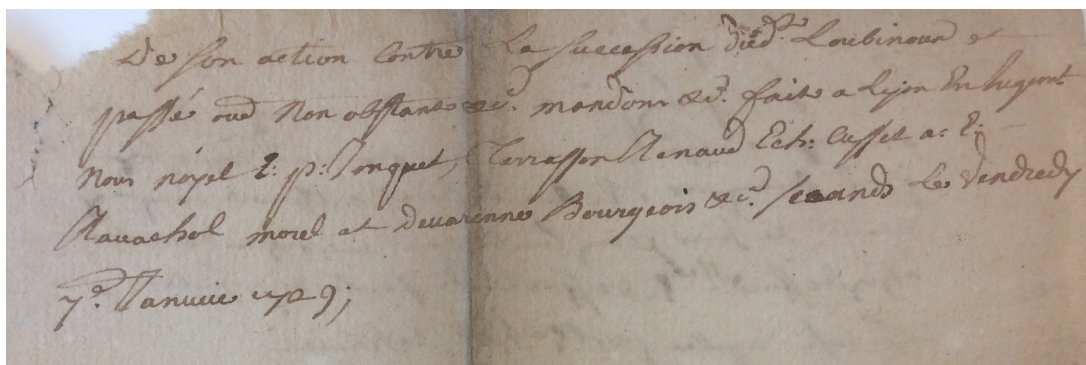 de son action Contre La succession dud. Loubinoux et
passé oud Non obstant &c. mandons &c. fait a Lyon En Jugent.
Nous nóyel L. p. Ponquet, Terrasson Renaud Ech. Cusset a. E.
Ravachol morel et devarenne Bourgeois &c. seands Le Vendredy
7e. Janvie 1729;